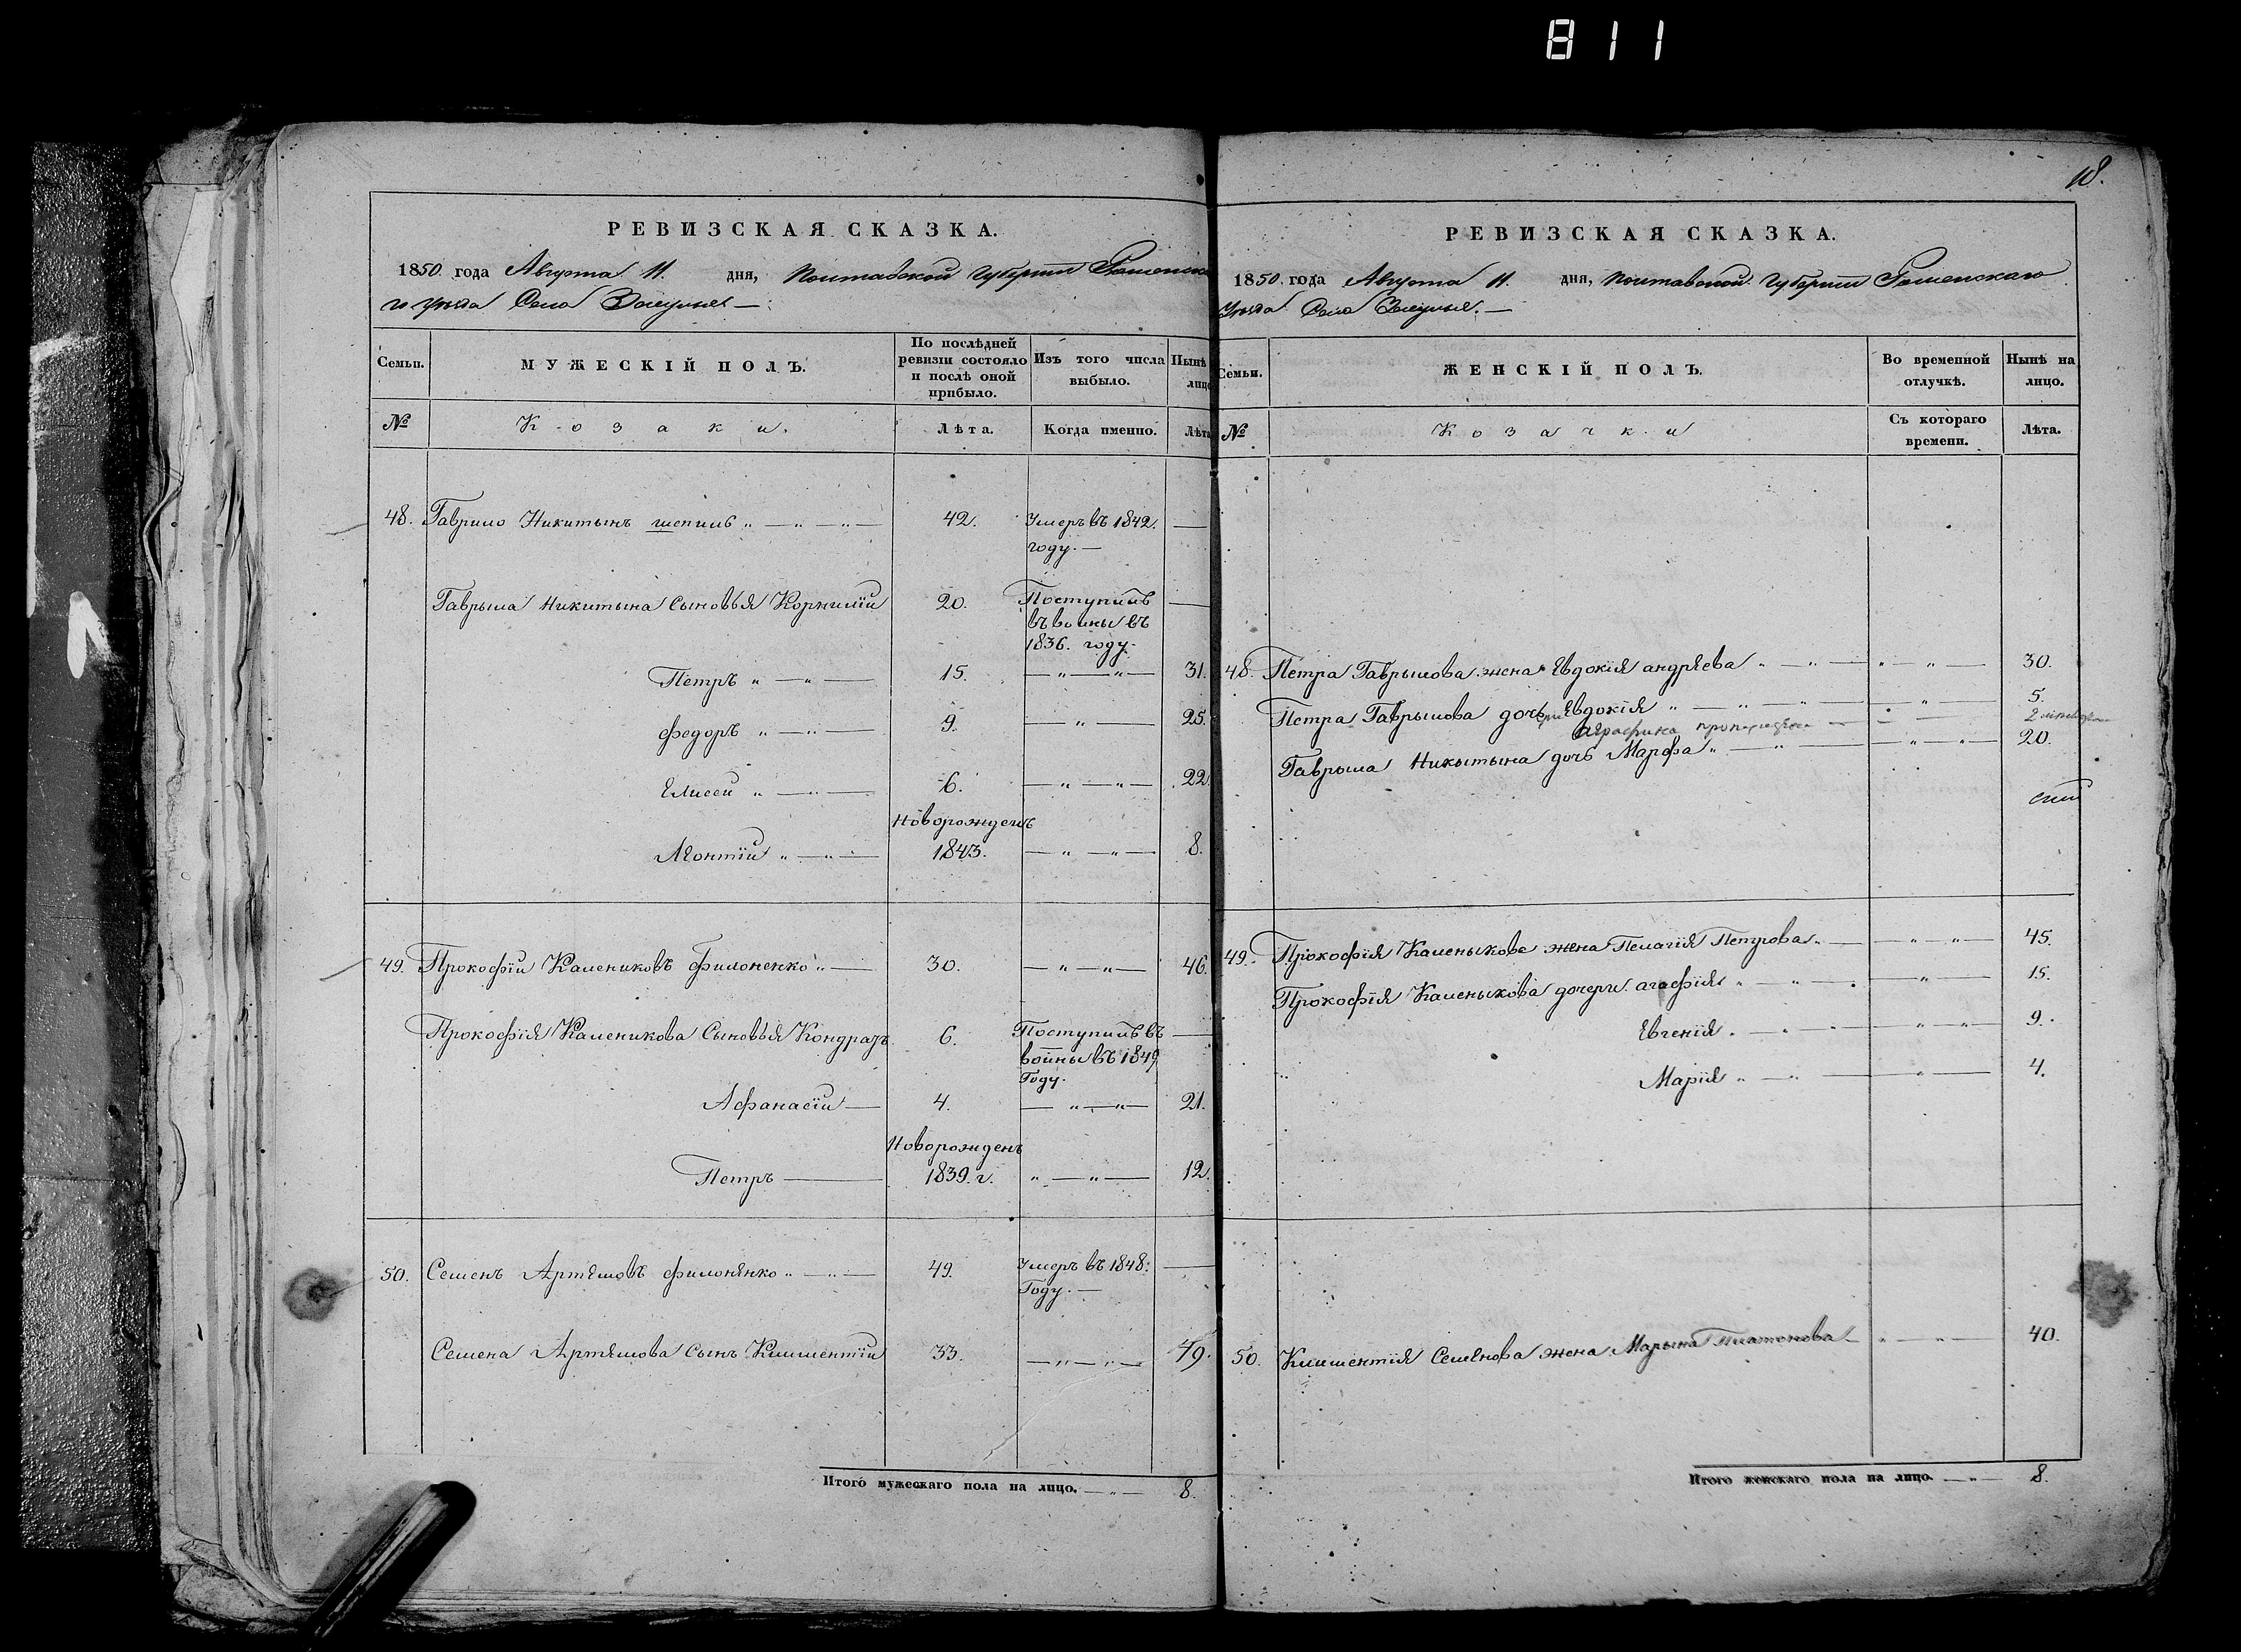 811
18.
РЕВИЗСКАЯ СКАЗКА.
1850 года Августа 11. дня, Полтавской Губернии Роменска
го уѣзда Села Засулья —
Семьи. МУЖЕСКІЙ ПОЛЪ. По послѣдней ревизіи состояло и послѣ оной прибыло. Изъ того числа выбыло. Нынѣ лицо
№ Козаки. Лѣта. Когда именно. Лѣта
48. Гаврило Никитынъ 42. Умеръ въ 1842.
году. —
Гаврыла Никитына Сыновья Корнилій 20. Поступилъ
въ воины въ
1836. году.
Петръ " — " — 15. — " — " — 31.
Федоръ " — " — 9. — " — 25.
Елисей " — " — 6. — " — " — 22.
Новорожденъ
Леонтій " — " — 1843. — " — " — 8.
49. Прокофій Калениковъ Филоненко " — 30. — " — " — 46.
Прокофія Каленикова Сыновья Кондратъ 6. Поступилъ въ
войны въ 1849
Году.
Афанасій — 4. — " — " — 21.
Новорожденъ
Петръ — 1839. г. " — " — 12.
50. Семенъ Артемовъ Филонѣнко " — " — 49. Умеръ въ 1848.
Году. —
Семена Артемова Сынъ Климентій 33. — " — " — 49.
Итого мужескаго пола на лицо. — " — 8.
РЕВИЗСКАЯ СКАЗКА.
1850. года Августа 11. дня, Полтавской Губерніи Роменскаго
Уѣзда Села Засулья. —
Семьи. ЖЕНСКІЙ ПОЛЪ. Во временной отлучкѣ. Нынѣ на лицо.
№ Козачки Съ котораго времени. Лѣта.
48. Петра Гаврылова жена Евдокія андреева " — " — " — " — 30.
Петра Гаврылова дочь Евдокія " — " — " — " — 5.
Аграфина 2
Гаврыла Никытына дочь Марфа " — " — " — " — 20.
49. Прокофія Каленыкова жена Пелагія Петрова " — " — " — 45.
Прокофія Каленыкова дочери агафія " — " — " — 15.
Евгенія " — " — " — " — 9.
Марія " — " — " — 4.
50. Климентія Семенова жена Марына Платонова — " — " — 40.
Итого женскаго пола на лицо. — " — 8.